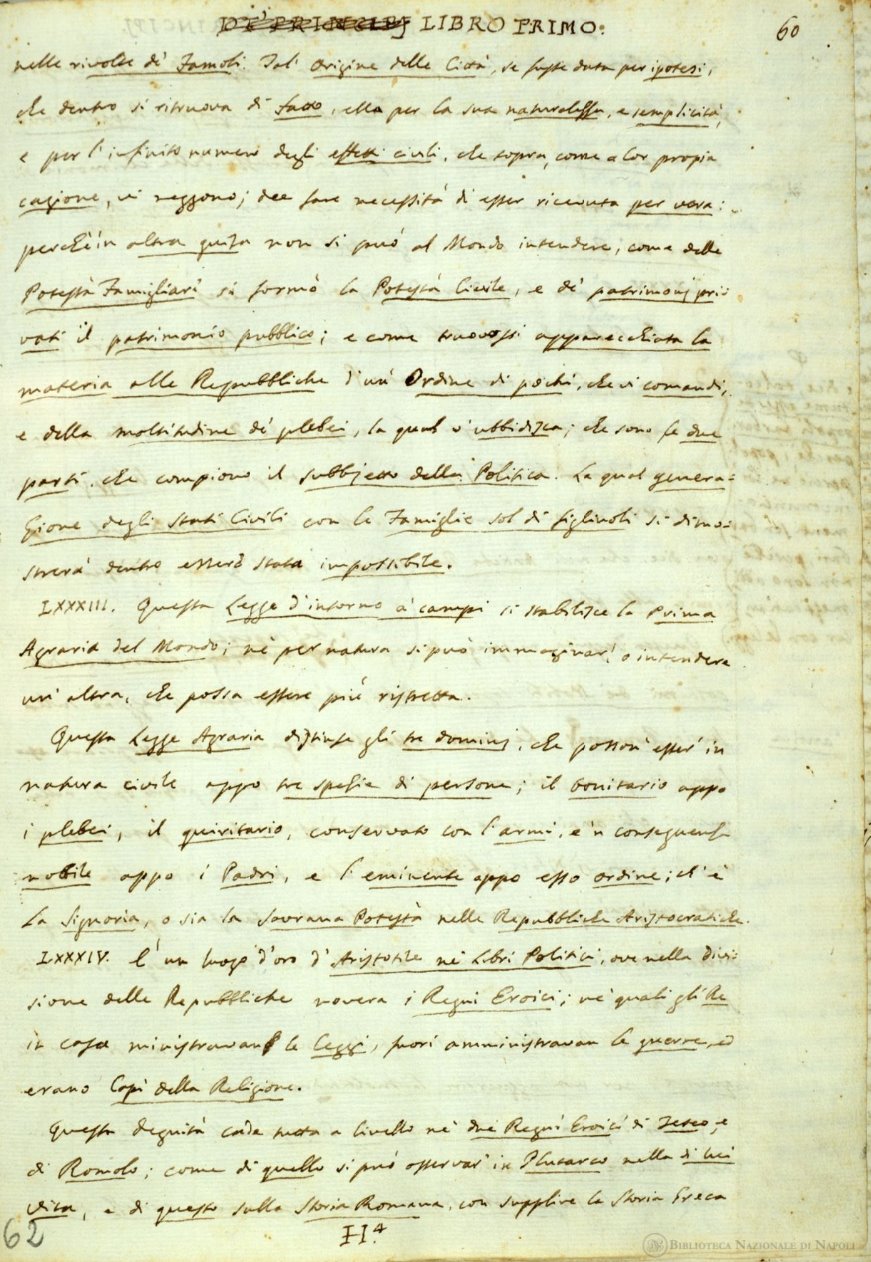 DE' PRINCIPJ LIBRO PRIMO. 60
nelle rivolte de' Famoli. Tal' Origine delle Città, se fusse data per ipotesi,
che dentro si ritruova di fatto, ella per la sua naturalezza, e semplicità,
e per l'infinito numero degli effetti civili, che sopra, come a lor propia
cagione, vi reggono; dee fare necessità di esser ricevuta per vera:
perchè 'n altra guisa non si può al Mondo intendere, come delle
Potestà Famigliari si formò la Potestà Civile, e de' patrimonj pri-
vati il patrimonio pubblico; e come truovossi apparecchiata la
materia alle Repubbliche d'un' Ordine di pochi, che vi comandi,
e della moltitudine de' plebei, la qual v' ubbidisca; che sono le due
parti, che compiono il subbjetto della Politica. La qual genera-
zione degli Stati Civili con le Famiglie sol di figliuoli si dimo-
strerà dentro essere stata impossibile.
LXXXIII. Questa Legge d'intorno a' campi si stabilisce la Prima
Agraria del Mondo; nè per natura si può immaginar', o intendere
un' altra, che possa essere più ristretta.
Questa Legge Agraria distinse gli tre dominj, che posson' esser' in
natura civile appo tre spezie di persone; il bonitario appo
i plebei, il quiritario, conservato con l'armi, e 'n conseguenza
nobile appo i Padri, e l' eminente appo esso ordine; ch' è
la Signoria, o sia la Sovrana Potestà nelle Repubbliche Aristocratiche.
LXXXIV. È un luogo d'oro d' Aristotile ne' Libri Politici, ove nella divi-
sione delle Repubbliche novera i Regni Eroici; ne' quali gli Re
in casa ministravano le leggi, fuori amministravan le guerre, ed
erano Capi della Religione.
Questa degnità cade tutta a livello ne' due Regni Eroici di Teseo, e
di Romolo; come di quello si può osservar' in Plutarco nella di lui
vita, e di questo sulla Storia Romana, con supplire la Storia Greca
62 H.4
BIBLIOTECA NAZIONALE DI NAPOLI